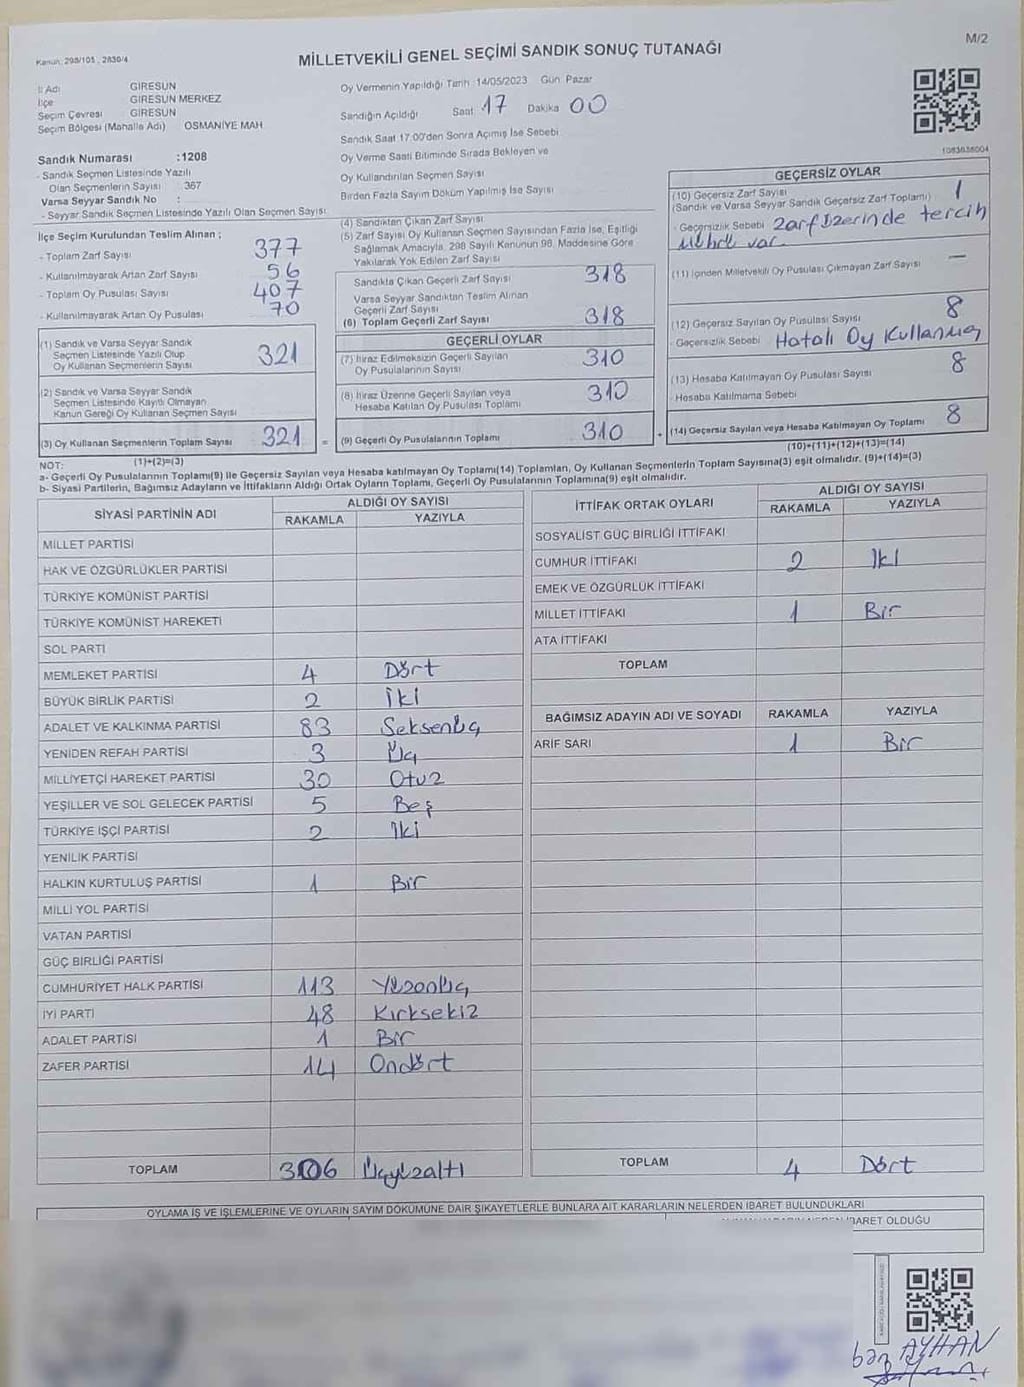 M/2
Kanun: 298/105 , 2839/4
MİLLETVEKİLİ GENEL SEÇİMİ SANDIK SONUÇ TUTANAĞI
İl Adı GİRESUN
İlçe GİRESUN MERKEZ
Seçim Çevresi GİRESUN
Seçim Bölgesi (Mahalle Adı) OSMANİYE MAH
Sandık Numarası :1208
- Sandık Seçmen Listesinde Yazılı
Olan Seçmenlerin Sayısı 367
Varsa Seyyar Sandık No :
- Seyyar Sandık Seçmen Listesinde Yazılı Olan Seçmen Sayısı
İlçe Seçim Kurulundan Teslim Alınan ;
- Toplam Zarf Sayısı 377
- Kullanılmayarak Artan Zarf Sayısı 56
- Toplam Oy Pusulası Sayısı 407
- Kullanılmayarak Artan Oy Pusulası 70
(1) Sandık ve Varsa Seyyar Sandık
Seçmen Listesinde Yazılı Olup
Oy Kullanan Seçmenlerin Sayısı 321
(2) Sandık ve Varsa Seyyar Sandık
Seçmen Listesinde Kayıtlı Olmayan
Kanun Gereği Oy Kullanan Seçmen Sayısı
(3) Oy Kullanan Seçmenlerin Toplam Sayısı 321 =
(1)+(2)=(3)
Oy Vermenin Yapıldığı Tarih :14/05/2023 Gün Pazar
Sandığın Açıldığı Saat 17 Dakika 00
Sandık Saat 17:00'den Sonra Açımış İse Sebebi
Oy Verme Saati Bitiminde Sırada Bekleyen ve
Oy Kullandırılan Seçmen Sayısı
Birden Fazla Sayım Döküm Yapılmış İse Sayısı
(4) Sandıktan Çıkan Zarf Sayısı
(5) Zarf Sayısı Oy Kullanan Seçmen Sayısından Fazla İse, Eşitliği
Sağlamak Amacıyla, 298 Sayılı Kanunun 98. Maddesine Göre
Yakılarak Yok Edilen Zarf Sayısı
Sandıkta Çıkan Geçerli Zarf Sayısı 318
Varsa Seyyar Sandıktan Teslim Alınan
Geçerli Zarf Sayısı
(6) Toplam Geçerli Zarf Sayısı 318
GEÇERLİ OYLAR
(7) İtiraz Edilmeksizin Geçerli Sayılan
Oy Pusulalarının Sayısı 310
(8) İtiraz Üzerine Geçerli Sayılan veya
Hesaba Katılan Oy Pusulası Toplamı 310
(9) Geçerli Oy Pusulalarının Toplamı 310 +
1083638004
GEÇERSİZ OYLAR
(10) Geçersiz Zarf Sayısı 1
(Sandık ve Varsa Seyyar Sandık Geçersiz Zarf Toplamı)
- Geçersizlik Sebebi Zarf üzerinde tercih
mührü var.
(11) İçinden Milletvekili Oy Pusulası Çıkmayan Zarf Sayısı —
(12) Geçersiz Sayılan Oy Pusulası Sayısı 8
- Geçersizlik Sebebi Hatalı Oy Kullanmış
(13) Hesaba Katılmayan Oy Pusulası Sayısı 8
- Hesaba Katılmama Sebebi
(14) Geçersiz Sayılan veya Hesaba Katılmayan Oy Toplamı 8
(10)+(11)+(12)+(13)=(14)
NOT:
a- Geçerli Oy Pusulalarının Toplamı(9) ile Geçersiz Sayılan veya Hesaba katılmayan Oy Toplamı(14) Toplamları, Oy Kullanan Seçmenlerin Toplam Sayısına(3) eşit olmalıdır. (9)+(14)=(3)
b- Siyasi Partilerin, Bağımsız Adayların ve İttifakların Aldığı Ortak Oyların Toplamı, Geçerli Oy Pusulalarının Toplamına(9) eşit olmalıdır.
SİYASİ PARTİNİN ADI ALDIĞI OY SAYISI
RAKAMLA YAZIYLA
MİLLET PARTİSİ
HAK VE ÖZGÜRLÜKLER PARTİSİ
TÜRKİYE KOMÜNİST PARTİSİ
TÜRKİYE KOMÜNİST HAREKETİ
SOL PARTİ
MEMLEKET PARTİSİ 4 Dört
BÜYÜK BİRLİK PARTİSİ 2 İki
ADALET VE KALKINMA PARTİSİ 83 Seksenüç
YENİDEN REFAH PARTİSİ 3 Üç
MİLLİYETÇİ HAREKET PARTİSİ 30 Otuz
YEŞİLLER VE SOL GELECEK PARTİSİ 5 Beş
TÜRKİYE İŞÇİ PARTİSİ 2 İki
YENİLİK PARTİSİ
HALKIN KURTULUŞ PARTİSİ 1 Bir
MİLLİ YOL PARTİSİ
VATAN PARTİSİ
GÜÇ BİRLİĞİ PARTİSİ
CUMHURİYET HALK PARTİSİ 113 Yüzonüç
İYİ PARTİ 48 Kırksekiz
ADALET PARTİSİ 1 Bir
ZAFER PARTİSİ 14 Ondört
TOPLAM 306 Üçyüzaltı
İTTİFAK ORTAK OYLARI ALDIĞI OY SAYISI
RAKAMLA YAZIYLA
SOSYALİST GÜÇ BİRLİĞİ İTTİFAKI
CUMHUR İTTİFAKI 2 İki
EMEK VE ÖZGÜRLÜK İTTİFAKI
MİLLET İTTİFAKI 1 Bir
ATA İTTİFAKI
TOPLAM
BAĞIMSIZ ADAYIN ADI VE SOYADI RAKAMLA YAZIYLA
ARİF SARI 1 Bir
TOPLAM 4 Dört
OYLAMA İŞ VE İŞLEMLERİNE VE OYLARIN SAYIM DÖKÜMÜNE DAİR ŞİKAYETLERLE BUNLARA AİT KARARLARIN NELERDEN İBARET BULUNDUKLARI
İBARET OLDUĞU
AYHAN